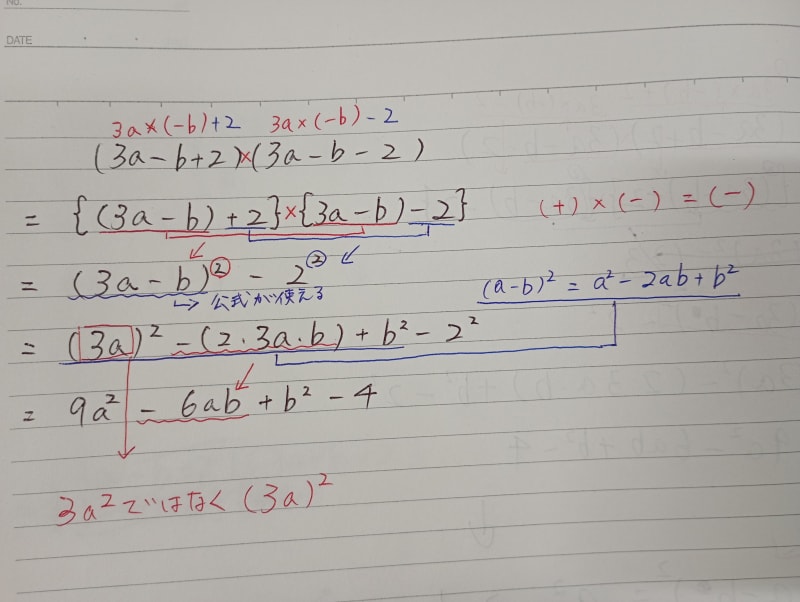 No.
DATE
3a×(-b)+2 3a×(-b)-2
(3a-b+2)×(3a-b-2)
= {(3a-b)+2}×{3a-b)-2} (+)×(-)=(-)
= (3a-b)² - 2²
→ 公式が使える (a-b)² = a² - 2ab + b²
= (3a)² - (2・3a・b) + b² - 2²
= 9a² - 6ab + b² - 4
3a²ではなく(3a)²